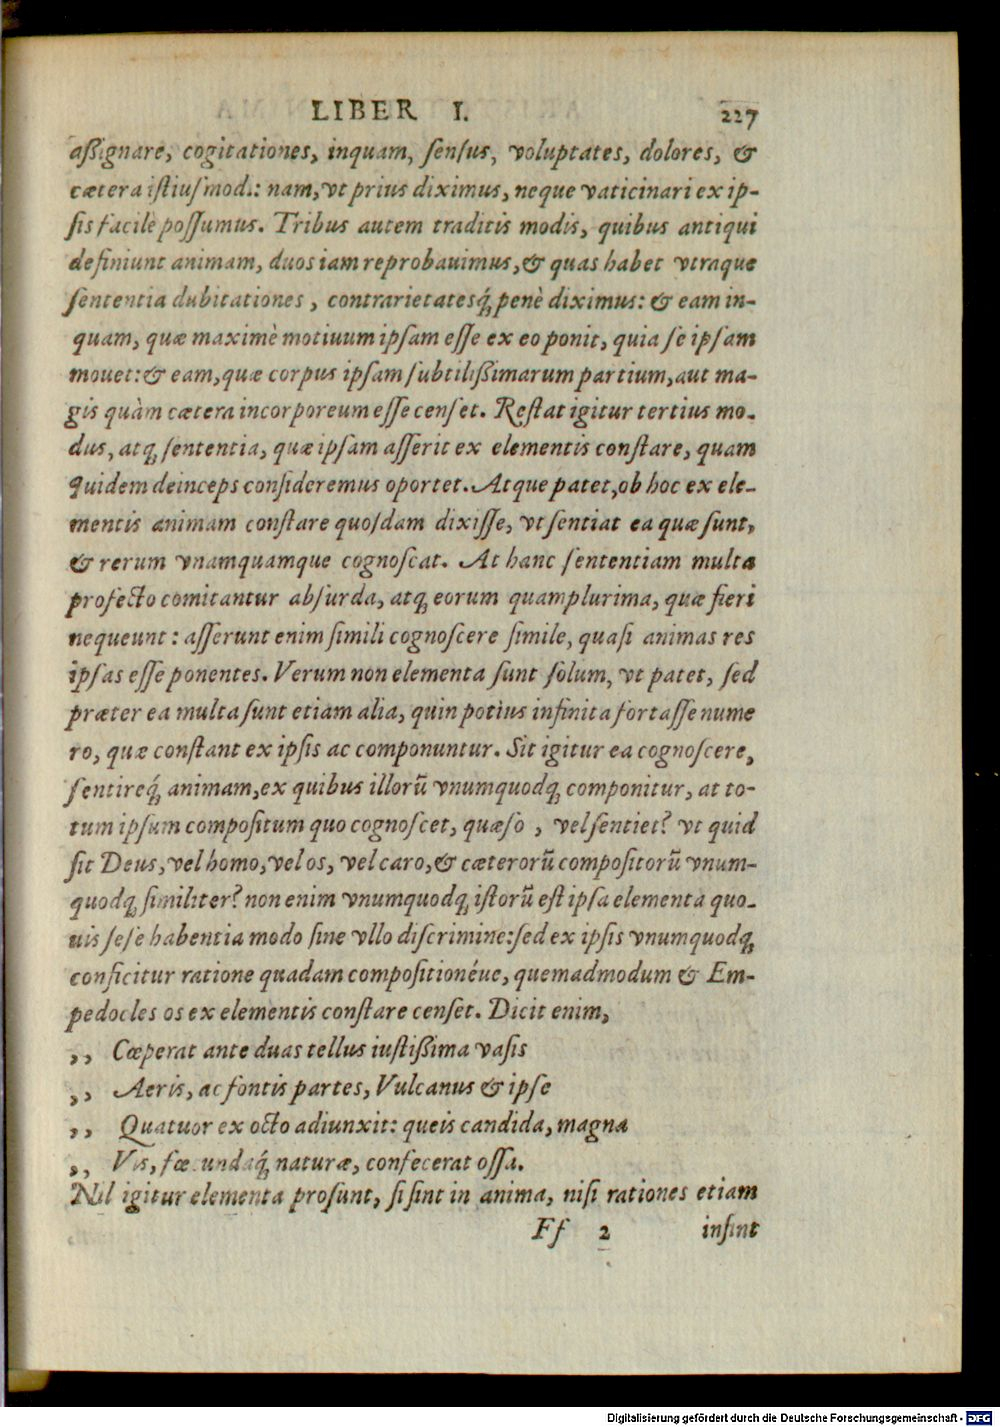 LIBER I. 227
aßignare, cogitationes, inquam, sensus, voluptates, dolores, &
cætera istiusmodi: nam, vt prius diximus, neque vaticinari ex ip-
sis facilè possumus. Tribus autem traditis modis, quibus antiqui
definiunt animam, duos iam reprobauimus, & quas habet vtraque
sententia dubitationes, contrarietatesq́; penè diximus: & eam in-
quam, quæ maximè motiuum ipsam esse ex eo ponit, quia se ipsam
mouet: & eam, quæ corpus ipsam subtilißimarum partium, aut ma-
gis quàm cætera incorporeum esse censet. Restat igitur tertius mo-
dus, atq; sententia, quæ ipsam asserit ex elementis constare, quam
quidem deinceps consideremus oportet. Atque patet, ob hoc ex ele-
mentis animam constare quosdam dixisse, vt sentiat ea quæ sunt,
& rerum vnamquamque cognoscat. At hanc sententiam multa
profecto comitantur absurda, atq; eorum quamplurima, quæ fieri
nequeunt: asserunt enim simili cognoscere simile, quasi animas res
ipsas esse ponentes. Verum non elementa sunt solum, vt patet, sed
præter ea multa sunt etiam alia, quin potius infinita fortasse nume
ro, quæ constant ex ipsis ac componuntur. Sit igitur ea cognoscere,
sentireq́; animam, ex quibus illorũ vnumquodq; componitur, at to-
tum ipsum compositum quo cognoscet, quæso, vel sentiet? vt quid
sit Deus, vel homo, vel os, vel caro, & cæterorũ compositorũ vnum-
quodq; similiter? non enim vnumquodq; istorũ est ipsa elementa quo-
uis sese habentia modo sine vllo discrimine: sed ex ipsis vnumquodq;
conficitur ratione quadam compositionéue, quemadmodum & Em-
pedocles os ex elementis constare censet. Dicit enim,
,, Cœperat ante duas tellus iustißima vasis
,, Aeris, ac fontis partes, Vulcanus & ipse
,, Quatuor ex octo adiunxit: queis candida, magna
,, Vis, fœcundaq́; naturæ, confecerat ossa.
Nil igitur elementa prosunt, si sint in anima, nisi rationes etiam
Ff 2 insint
Digitalisierung gefördert durch die Deutsche Forschungsgemeinschaft - DFG